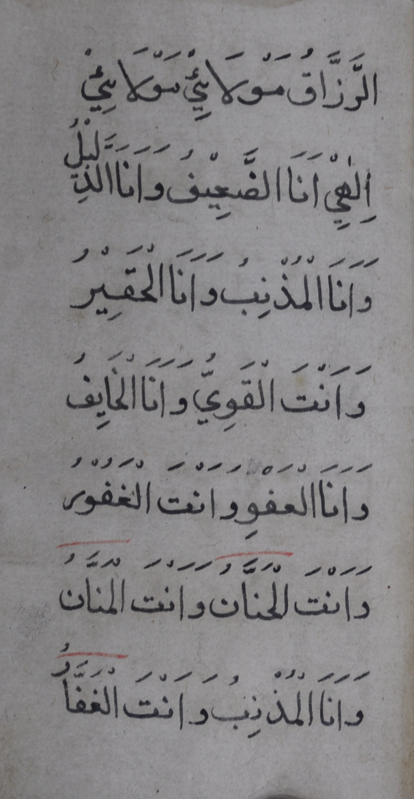 الرَّزَّاقُ مَوْلَائِيْ مَوْلَائِيْ
اِلٰهِيْ اَنَا الضَّعِيْفُ وَاَنَا الذَّلِيْلُ
وَاَنَا الْمُذْنِبُ وَاَنَا الْحَقِيْرُ
وَاَنْتَ الْقَوِيُّ وَاَنَا الْخَايِفُ
وَاَنَا الْعَفْوِ وَاَنْتَ الْغَفُوْرُ
وَاَنْتَ الْحَنَّانُ وَاَنْتَ الْمَنَّانُ
وَاَنَا الْمُذْنِبُ وَاَنْتَ الْغَفَّارُ